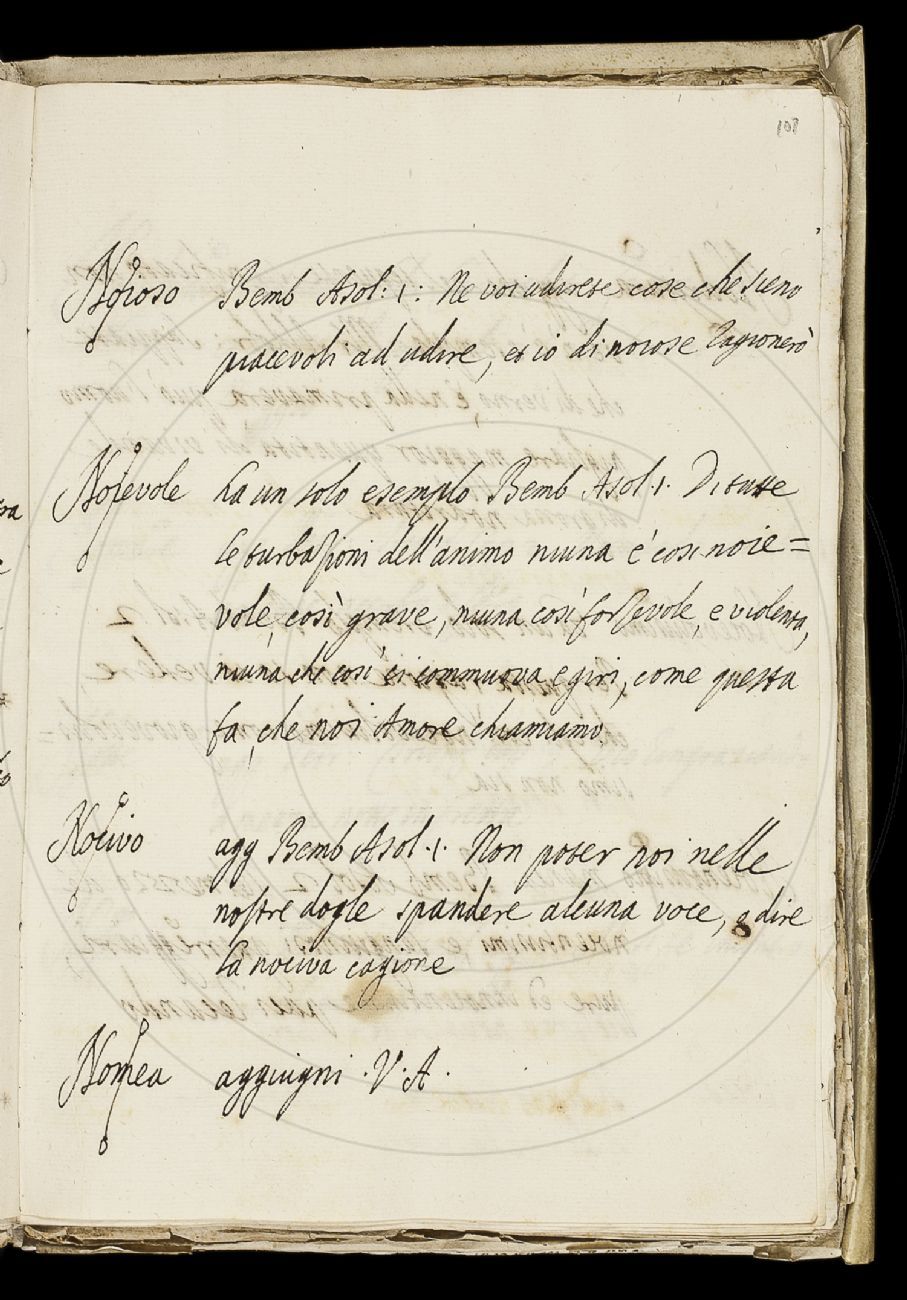 Noioso Bemb Asol: 1: Ne voi udirete cose che sieno
piacevoli ad udire, et io di noiose ragionerò
Noievole ha un solo esemplo Bemb Asol. 1. Di tutte
le turbazioni dell'animo niuna è così noie=
vole, così grave, niuna così forzevole, e violenta,
niuna che così ci commuova e giri, come questa
fa, che noi Amore chiamiamo.
Nocivo agg Bemb Asol. 1. Non poter noi nelle
nostre dogle spandere alcuna voce, o dire
la nociva cagione
Nomea aggiugni . V. A.